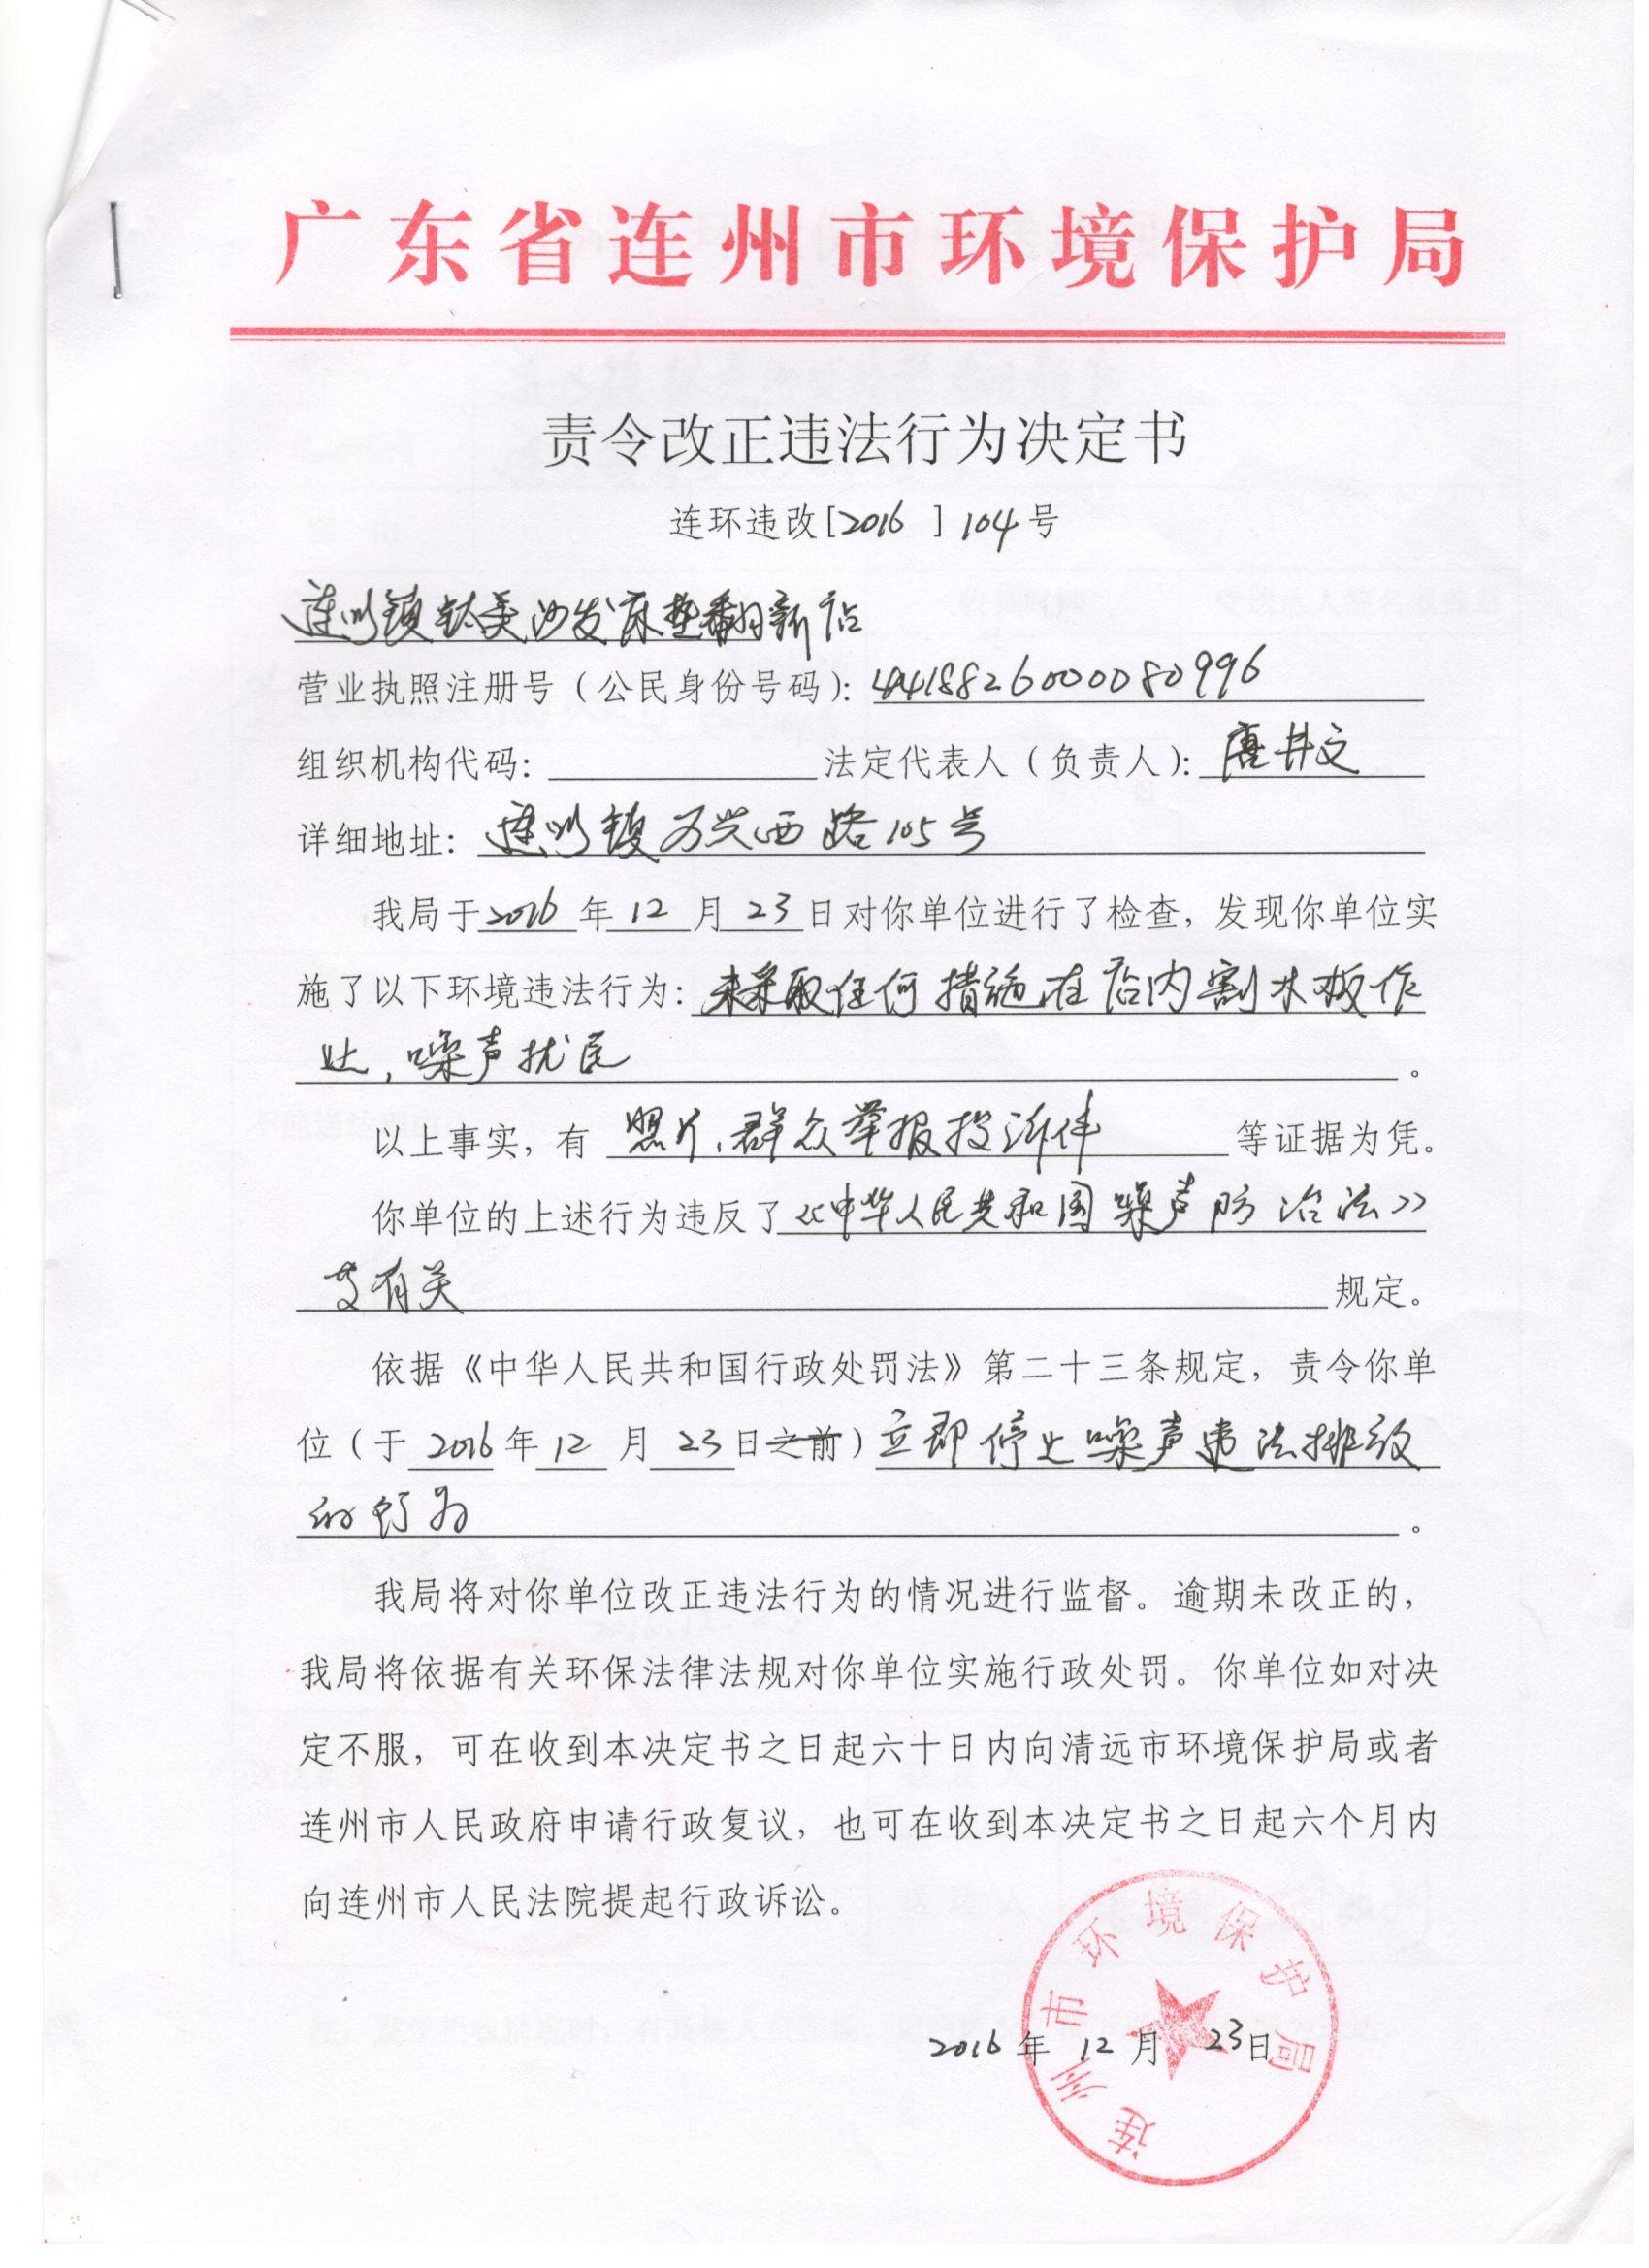 广东省连州市环境保护局
责令改正违法行为决定书
连环违改[2016]104号
连州镇钛美沙发床垫翻新店
营业执照注册号（公民身份号码）：441882600080996
组织机构代码：法定代表人（负责人）：唐井文
详细地址：连州镇万兴西路105号
我局于2016年12月23日对你单位进行了检查，发现你单位实
施了以下环境违法行为：未采取任何措施在店内割木板作
业，噪声扰民。
以上事实，有照片、群众举报投诉件等证据为凭。
你单位的上述行为违反了《中华人民共和国噪声防治法》
等有关规定。
依据《中华人民共和国行政处罚法》第二十三条规定，责令你单
位（于2016年12月23日之前）立即停止噪声违法排放
的行为。
我局将对你单位改正违法行为的情况进行监督。逾期未改正的，
我局将依据有关环保法律法规对你单位实施行政处罚。你单位如对决
定不服，可在收到本决定书之日起六十日内向清远市环境保护局或者
连州市人民政府申请行政复议，也可在收到本决定书之日起六个月内
向连州市人民法院提起行政诉讼。
连州市环境保护局
2016年12月23日